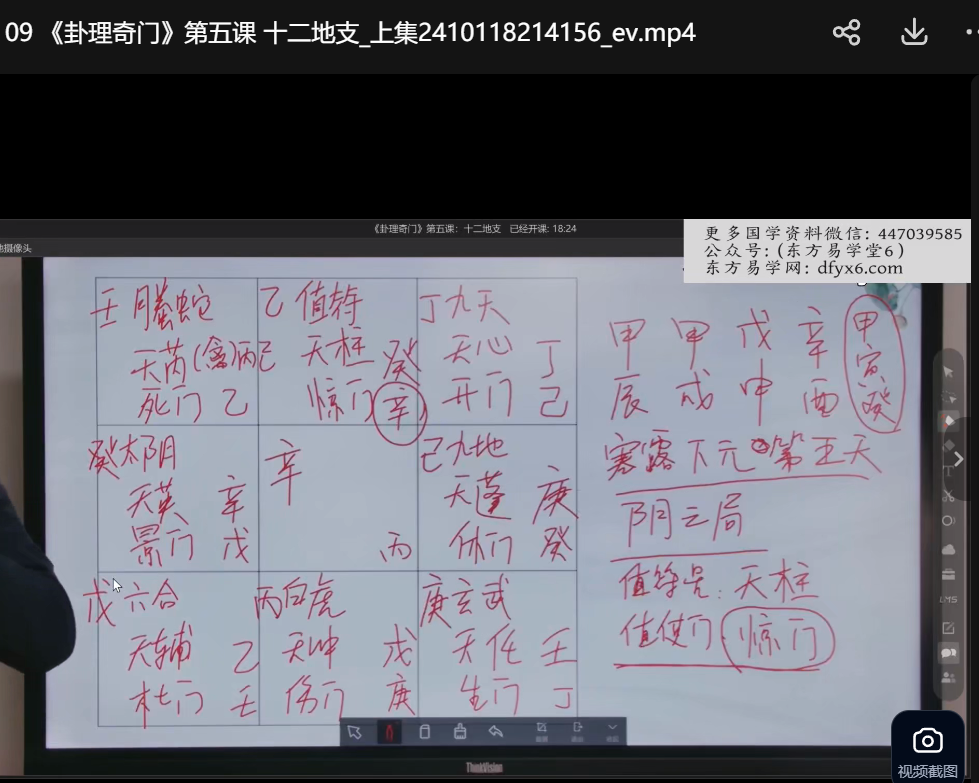 09 《卦理奇门》第五课 十二地支_上集2410118214156_ev.mp4
《卦理奇门》第五课：十二地支 已经开课: 18:24
更多国学资料微信: 447039585
公众号: (东方易学堂6)
东方易学网: dfyx6.com
壬 螣蛇
天芮(禽)丙己
死门 乙
乙 值符
天柱 癸
惊门 辛
丁 九天
天心 丁
开门 己
癸 太阴
天英 辛
景门 戊
辛
丙
己 九地
天蓬 庚
休门 癸
戊 六合
天辅 乙
杜门 壬
丙 白虎
天冲 戊
伤门 庚
庚 玄武
天任 壬
生门 丁
甲 甲 戊 辛 甲
辰 戌 申 酉 寅
癸
寒露下元 第五天
阴三局
值符星: 天柱
值使门: 惊门
ThinkVision
视频截图